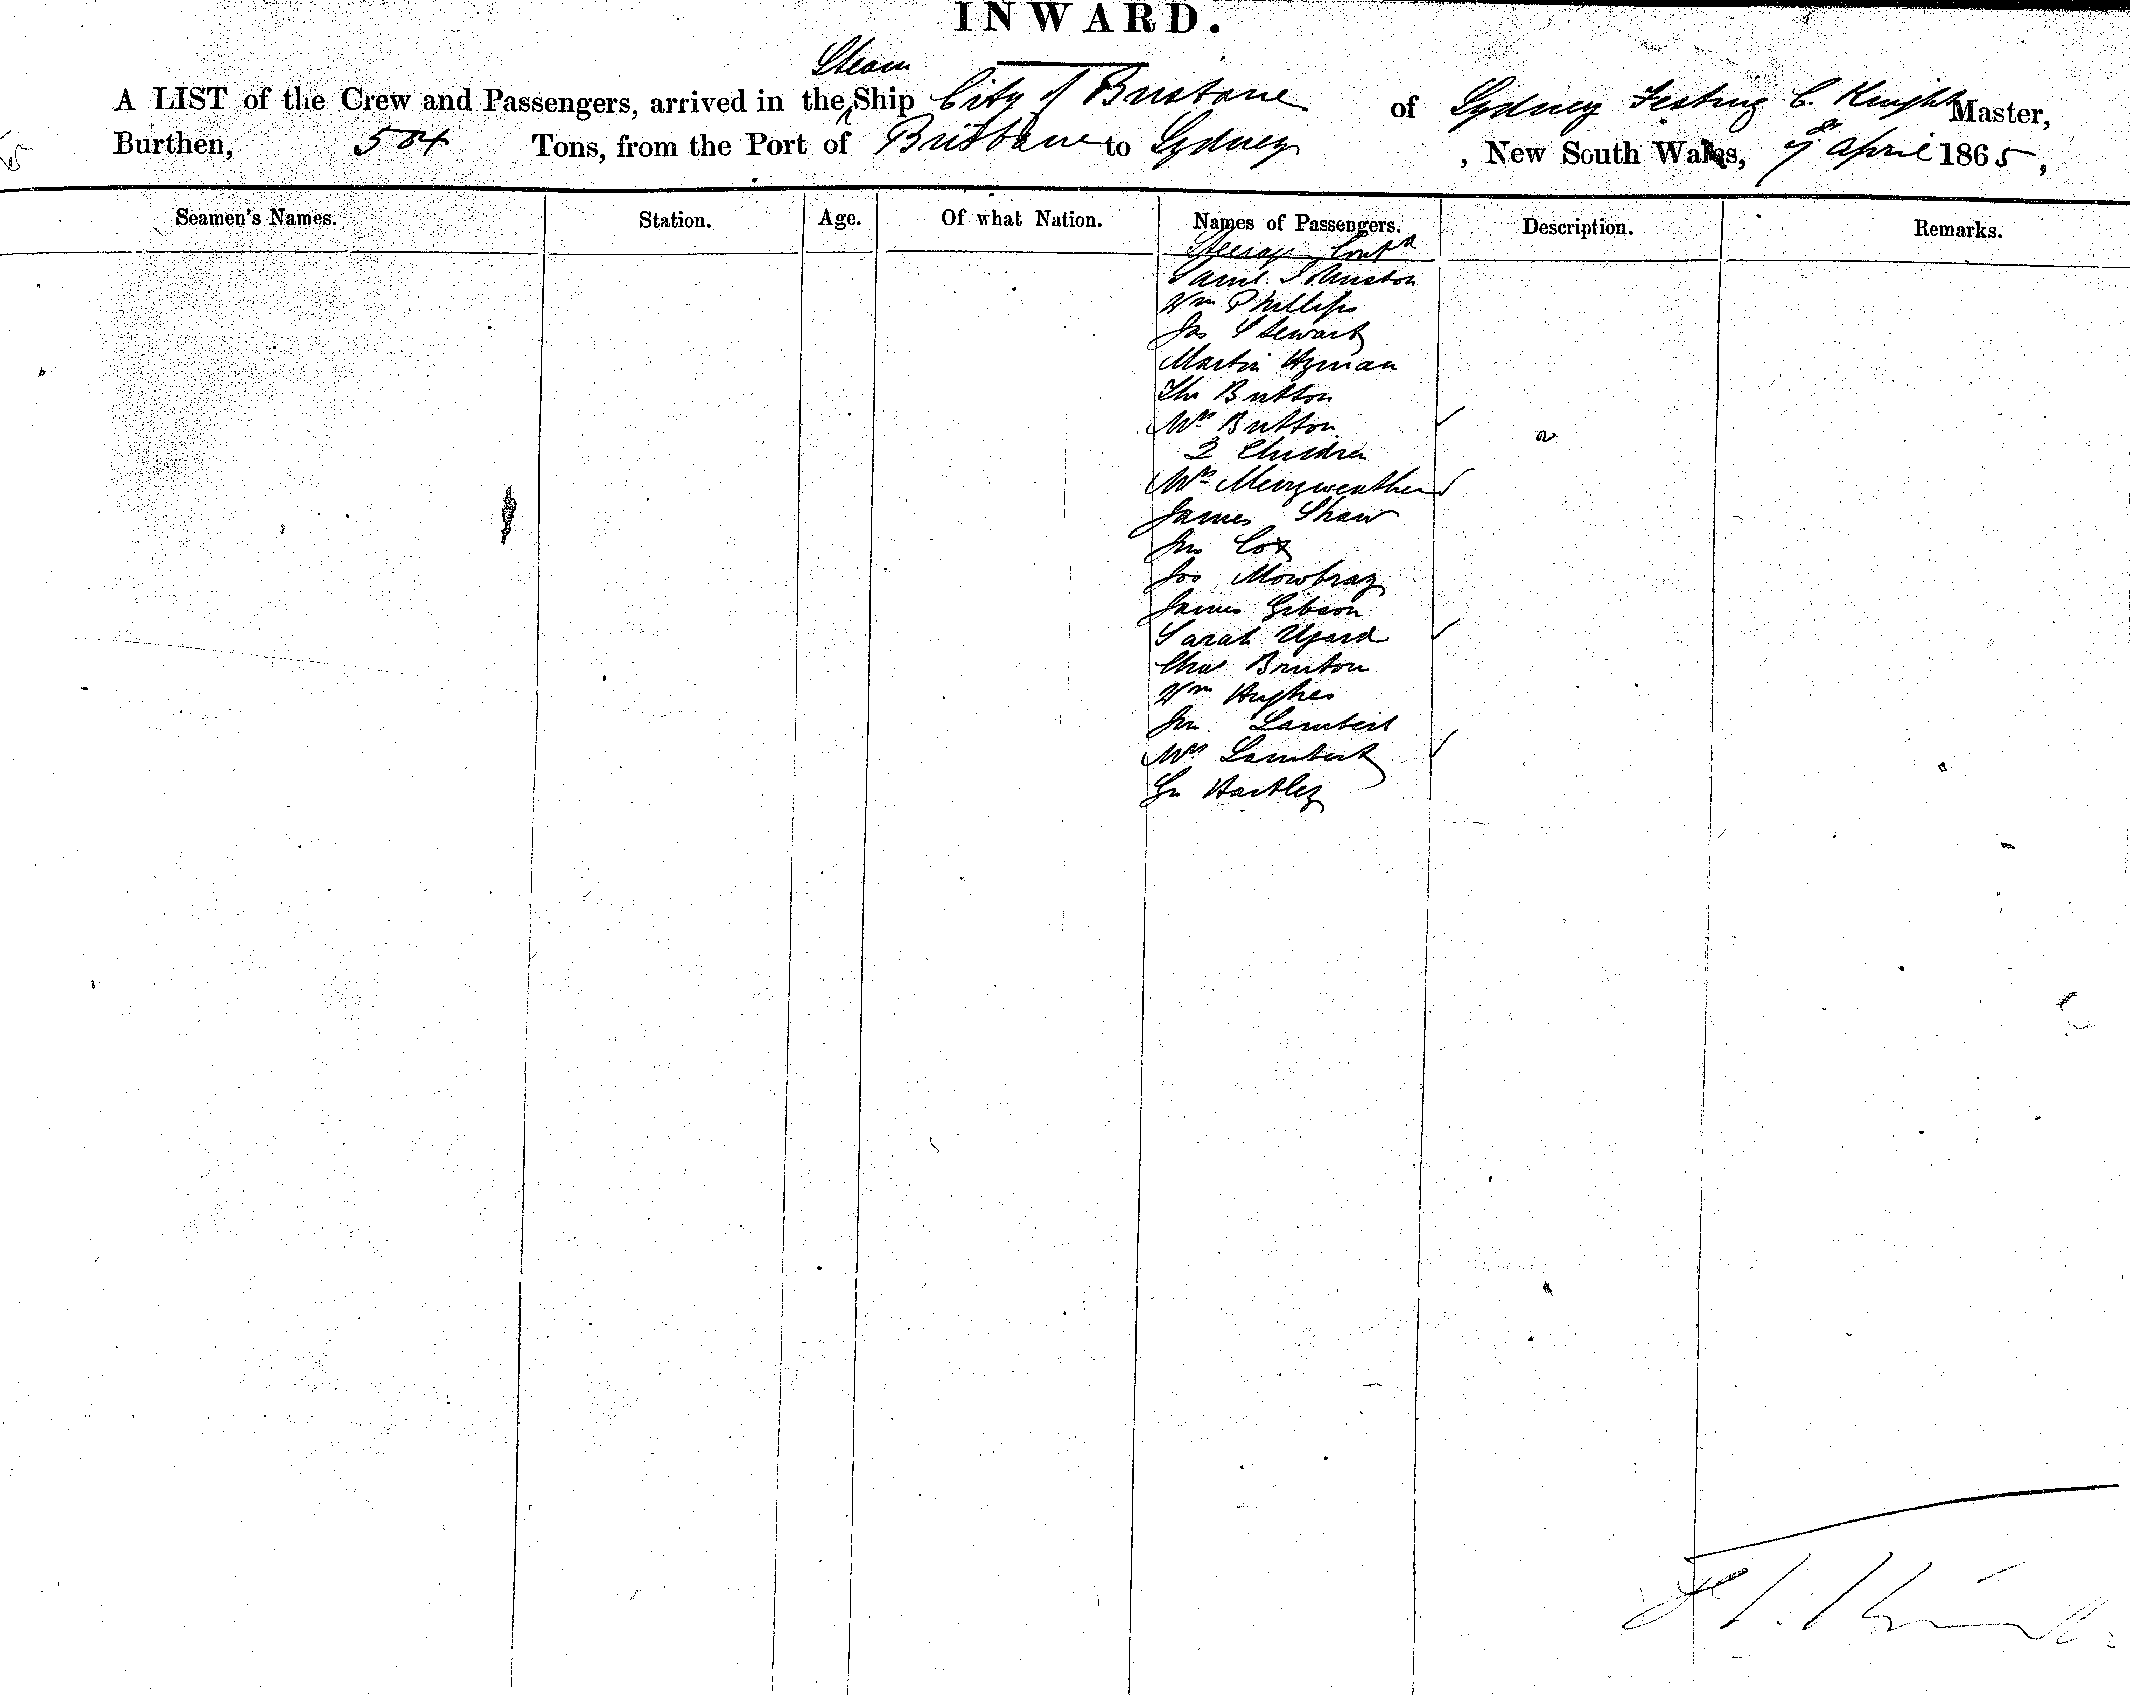 INWARD.
Steam
A LIST of the Crew and Passengers, arrived in the Ship City of Brisbane of Sydney C. Knight Master,
Burthen, 504 Tons, from the Port of Brisbane to Sydney, New South Wales, 7th April 1865,
Seamen's Names. Station. Age. Of what Nation. Names of Passengers. Description. Remarks.
Steerage Contd
Saml. Johnston
Wm Phillips
Jas Stewart
Martin Hyman
Thos Button
Mrs Button
2 Children
Mrs Merryweather
James Shaw
Jno Cox
Jos Mowbray
James Gibson
Sarah
Chas Bruton
Wm Hughes
Jno Lambert
Mrs Lambert
Geo Hartley